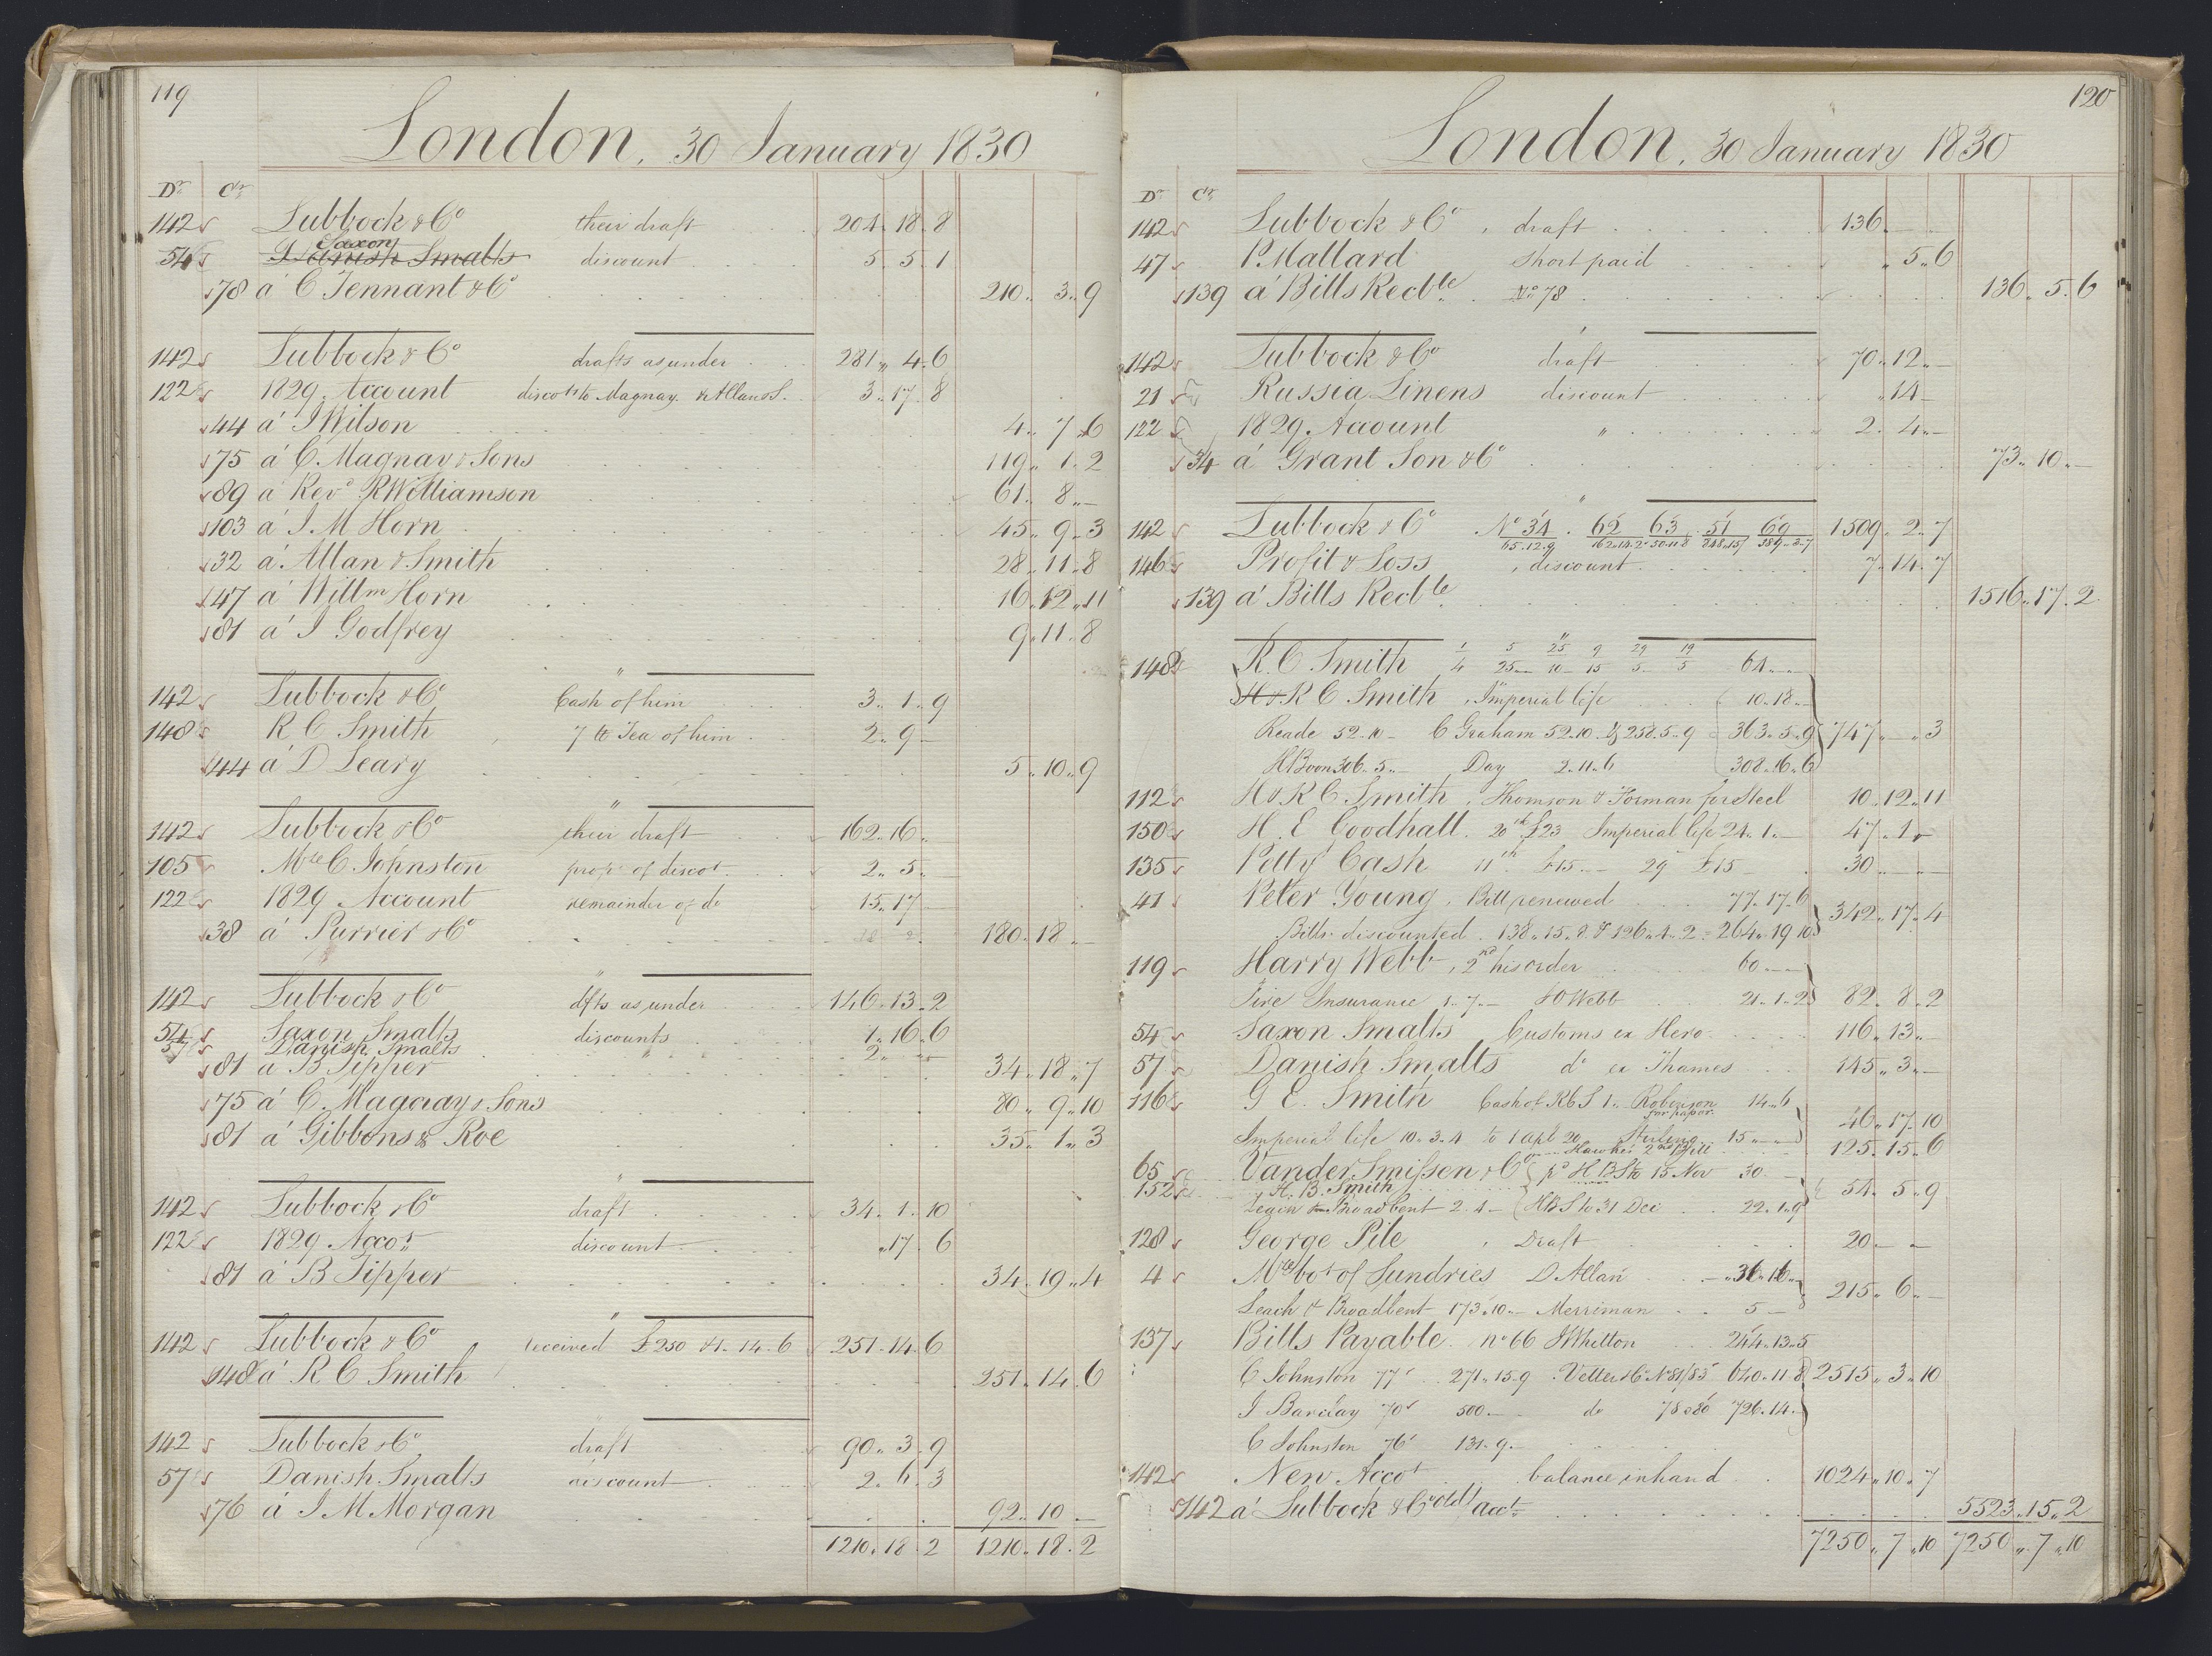 119
London, 30 January 1830
Dr Cr
142 Lubbock & Co their draft 204 . 18 . 8
54 Danish Saxon Smalts discount 5 . 5 . 1
78 á C Tennant & Co 210 . 3 . 9
142 Lubbock & Co drafts as under 281 " 4 . 6
122 1829 Account discots to Magnay & Allan & S. 3 . 17 . 8
44 á J Wilson 4 . 7 . 6
75 á C. Magnay & Sons 119 . 1 . 2
89 á Revd R Williamson 61 . 8 . —
103 á J. M Horn 45 . 9 . 3
32 á Allan & Smith 28 . 11 . 8
47 á Willm Horn 16 . 12 . 11
81 á J Godfrey 9 . 11 . 8
142 Lubbock & Co Cash of him 3 . 1 . 9
148 R C Smith 7 lb Tea of him 2 . 9 —
44 á D Leary 5 . 10 . 9
142 Lubbock & Co their draft 162 . 16 . —
105 Mde C Johnston propn of discot 2 . 5 . —
122 1829 Account remainder of do 15 . 17 —
38 á Purrier & Co 180 . 18 . —
142 Lubbock & Co dfts as under 146 . 13 . 2
54 Saxon Smalts discounts 1 . 16 . 6
57 Danish Smalts " 2 . — . —
81 á B Tipper 34 . 18 . 7
75 á C. Magnay & Sons 80 . 9 . 10
81 á Gibbons & Roe 35 . 1 . 3
142 Lubbock & Co draft 34 . 1 . 10
122 1829 Accot discount " 17 . 6
81 á B Tipper 34 . 19 . 4
142 Lubbock & Co received £250 & 1 . 14 . 6 251 . 14 . 6
148 á R C Smith 251 . 14 . 6
142 Lubbock & Co draft 90 . 3 . 9
57 Danish Smalts discount 2 . 6 . 3
76 á J M Morgan 92 . 10 . —
1210 . 18 . 2 1210 . 18 . 2
120
London, 30 January 1830
Dr Cr
142 Lubbock & Co draft 136 . —
47 P. Mallard Short paid " 5 . 6
139 á Bills Recble No 78 136 . 5 . 6
142 Lubbock & Co draft 70 . 12 . —
21 Russia Linens discount " 14 —
122 1829 Account " 2 . 4 . —
34 á Grant Son & Co 73 . 10 . —
142 Lubbock & Co No 34 . 62 63 . 51 69 1509 . 2 . 7
65 . 12 . 9 162 . 14 . 2 50 . 11 . 8 848 . 15 / 381 . . 7
146 Profit & Loss , discount 7 . 14 . 7
139 á Bills Recble 1516 . 17 . 2
148 R. C Smith 1/4 5/25 25/10 9/15 29/5 19/5 64 . — . —
H & R C Smith , Imperial life 10 . 18 . —
Reade 52 . 10 — C Graham 52 . 10 . & 258 . 5 . 9 363 . 5 . 9 747 . — . 3
H Boon 306 . 5 . — Day 2 . 11 . 6 308 . 16 . 6
112 H & R C. Smith , Thomson & Forman for Steel 10 . 12 . 11
150 H. E Goodhall . 20th £23 Imperial life 24 . 1 . — 47 . 1 . —
135 Petty Cash 11th £15 . — 29 £15 — 30 . — . —
41 Peter Young , Bill renewed 77 . 17 . 6
Bills discounted . 138 . 15 . 8 & 126 . 4 . 2 = 264 . 19 10 342 . 17 . 4
119 Harry Webb , 2nd his order 60 . — . —
Fire Insurance 1 . 7 . — J O Webb 21 . 1 . 2 82 . 8 . 2
54 Saxon Smalts Customs ex Hero 116 . 13 . —
57 Danish Smalts do ex Thames 145 . 3 . —
116 G E. Smith Cash of R C S 1 . Robinson for paper 14 . 6
Imperial life 10 . 3 . 4 to 1 apl 20 Sterling 15 . — . — 46 . 17 . 10
Hawkes 2nd Bill 125 . 15 . 6
65 Vander Smissen & Co pd H. B S to 15 Nov 30 . —
152 H. B. Smith 54 . 5 . 9
Broadbent 2 . 4 — H B S to 31 Dec 22 . 1 . 9
128 George Pile , Draft 20 . — . —
4 Mdse bot of Sundries D Allan 36 . 16 . —
Leach & Broadbent 173 . 10 . — Merriman 5 — 215 . 6 . —
137 Bills Payable . no 66 J Whelton 244 . 13 . 5
C Johnston 77 271 . 15 . 9 Vetter & Co No 81/83 640 . 11 . 8 2515 . 3 . 10
J Barclay 70 500 . — do 78 & 80 726 . 14 . —
C Johnston 76 131 . 9 . —
142 New Accot balance in hand 1024 . 10 . 7
142 á Lubbock & Co old acct 5523 . 15 . 2
7250 . 7 . 10 7250 . 7 . 10